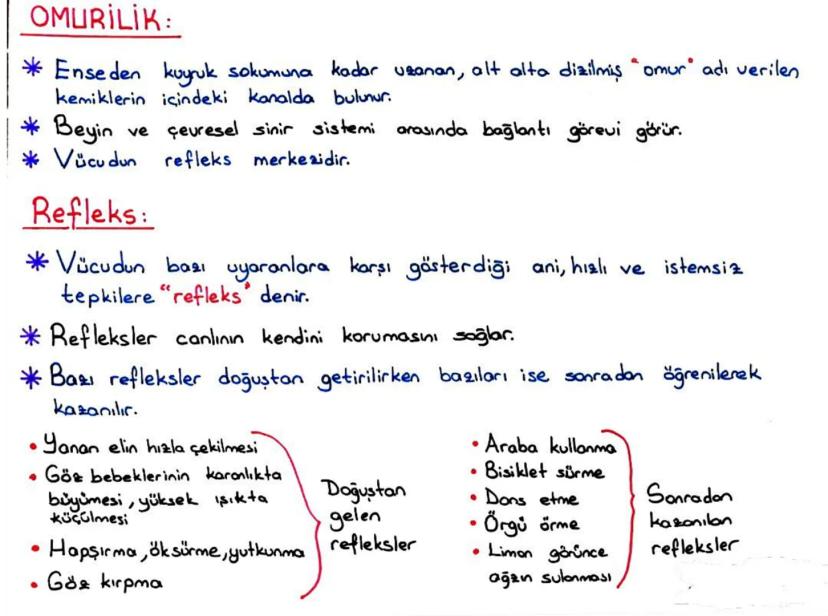 OMURİLİK:
* Enseden kuyruk sokumuna kadar uzanan, alt alta dizilmiş "omur" adı verilen
kemiklerin içindeki kanalda bulunur.
* Beyin ve çevresel sinir sistemi arasında bağlantı görevi görür.
* Vücudun refleks merkezidir.
Refleks:
* Vücudun bazı uyaranlara karşı gösterdiği ani, hızlı ve istemsiz
tepkilere "refleks" denir.
* Refleksler canlının kendini korumasını sağlar.
* Bazı refleksler doğuştan getirilirken bazıları ise sonradan öğrenilerek
kazanılır.
• Yanan elin hızla çekilmesi
• Göz bebeklerinin karanlıkta
büyümesi, yüksek ışıkta
küçülmesi
• Hapşırma, öksürme, yutkunma
• Göz kırpma
Doğuştan
gelen
refleksler
• Araba kullanma
• Bisiklet sürme
• Dans etme
• Örgü örme
• Limon görünce
ağzın sulanması
Sonradan
kazanılan
refleksler